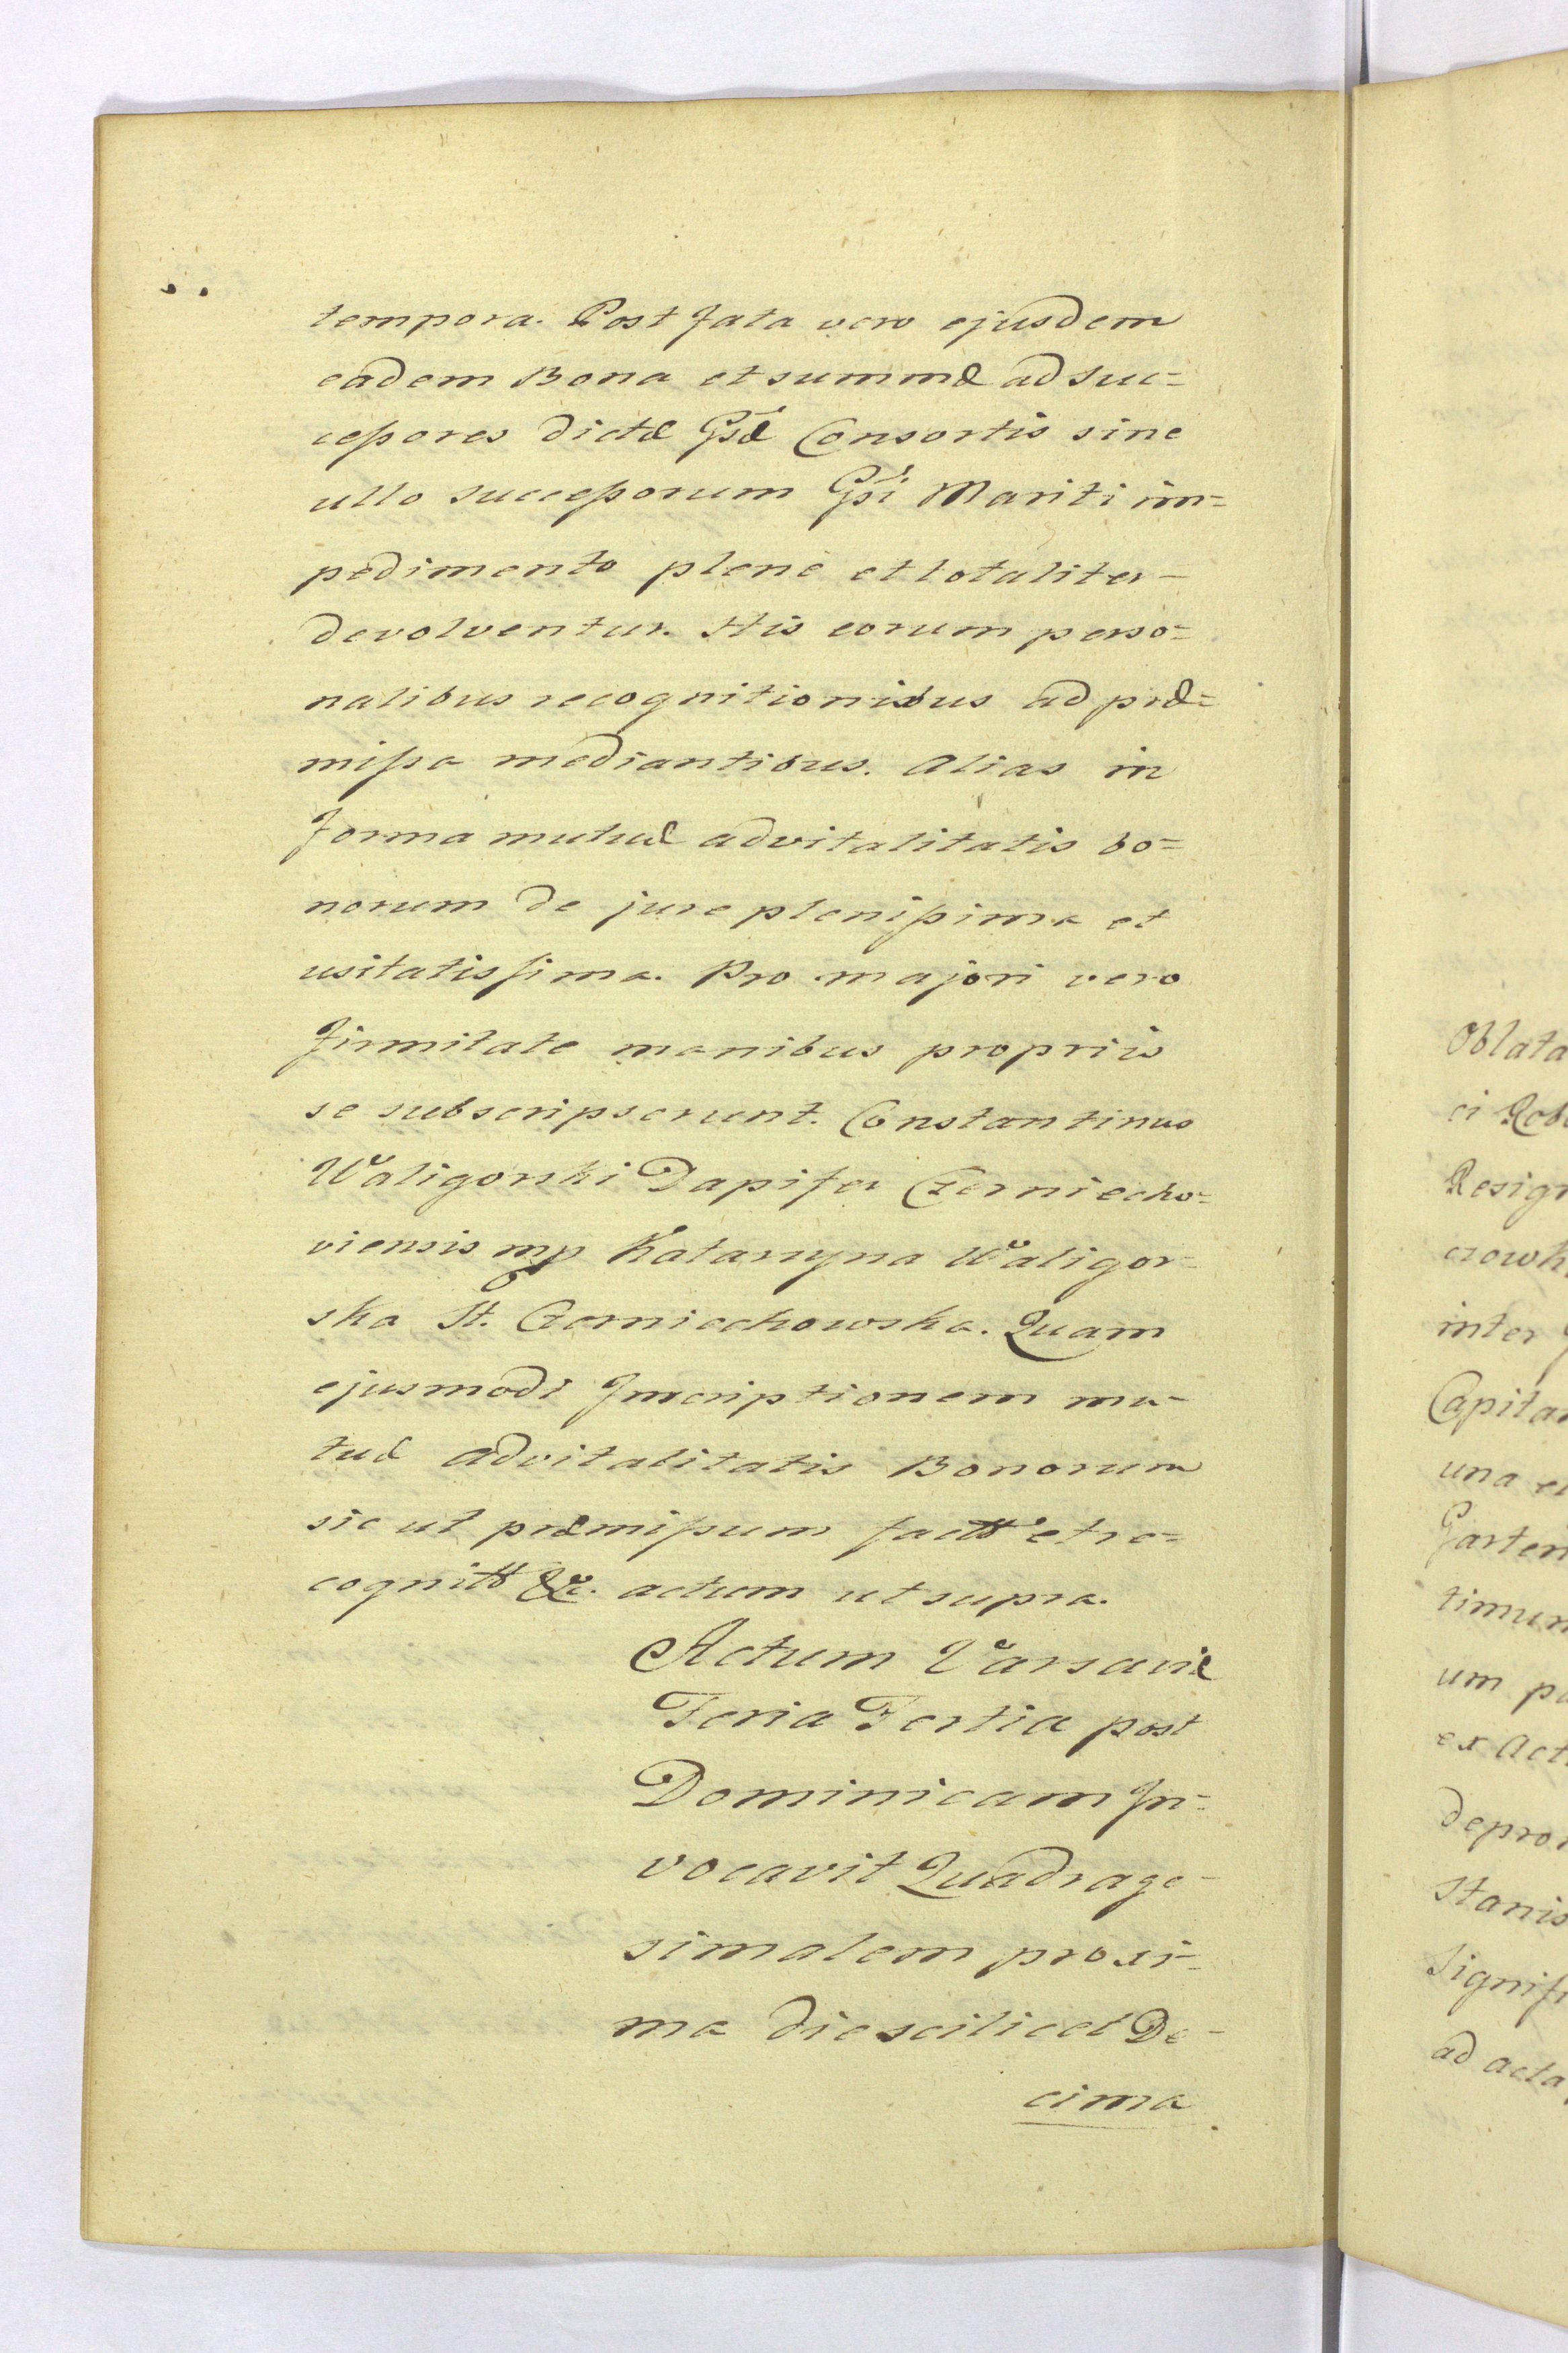 tempora. Post fata vero ejusdem
eadem Bona et summæ ad suc=
cessores dictæ Gsæ Consortis sine
ullo successorum Gsi Mariti im=
pedimento plenè et totaliter
devolventur. His eorum perso=
nalibus recognitionibus ad præ=
missa mediantibus. Alias in
forma mutuæ advitalitatis bo=
norum de jure plenissima et
usitatissima. Pro majori vero
firmitate manibus propriis
se subscripserunt. Constantinus
Waligorski Dapifer Czerniecho=
viensis mp Katarzyna Waligor=
ska St. Czerniechowska. Quam
ejusmodi Inscriptionem mu=
tuæ advitalitatis Bonorum
sic ut præmissum factt et re=
cognitt &c. actum ut supra.
Actum Varsaviæ
Feria Tertia post
Dominicam In=
vocavit Quadrage=
simalem proxi=
ma die scilicet De=
cima
Oblata
ci Rob
Resign
crowk
inter
Capita
una et
Garten
timum
um pa
ex Act
depro
Stanis
Signifi
ad acta